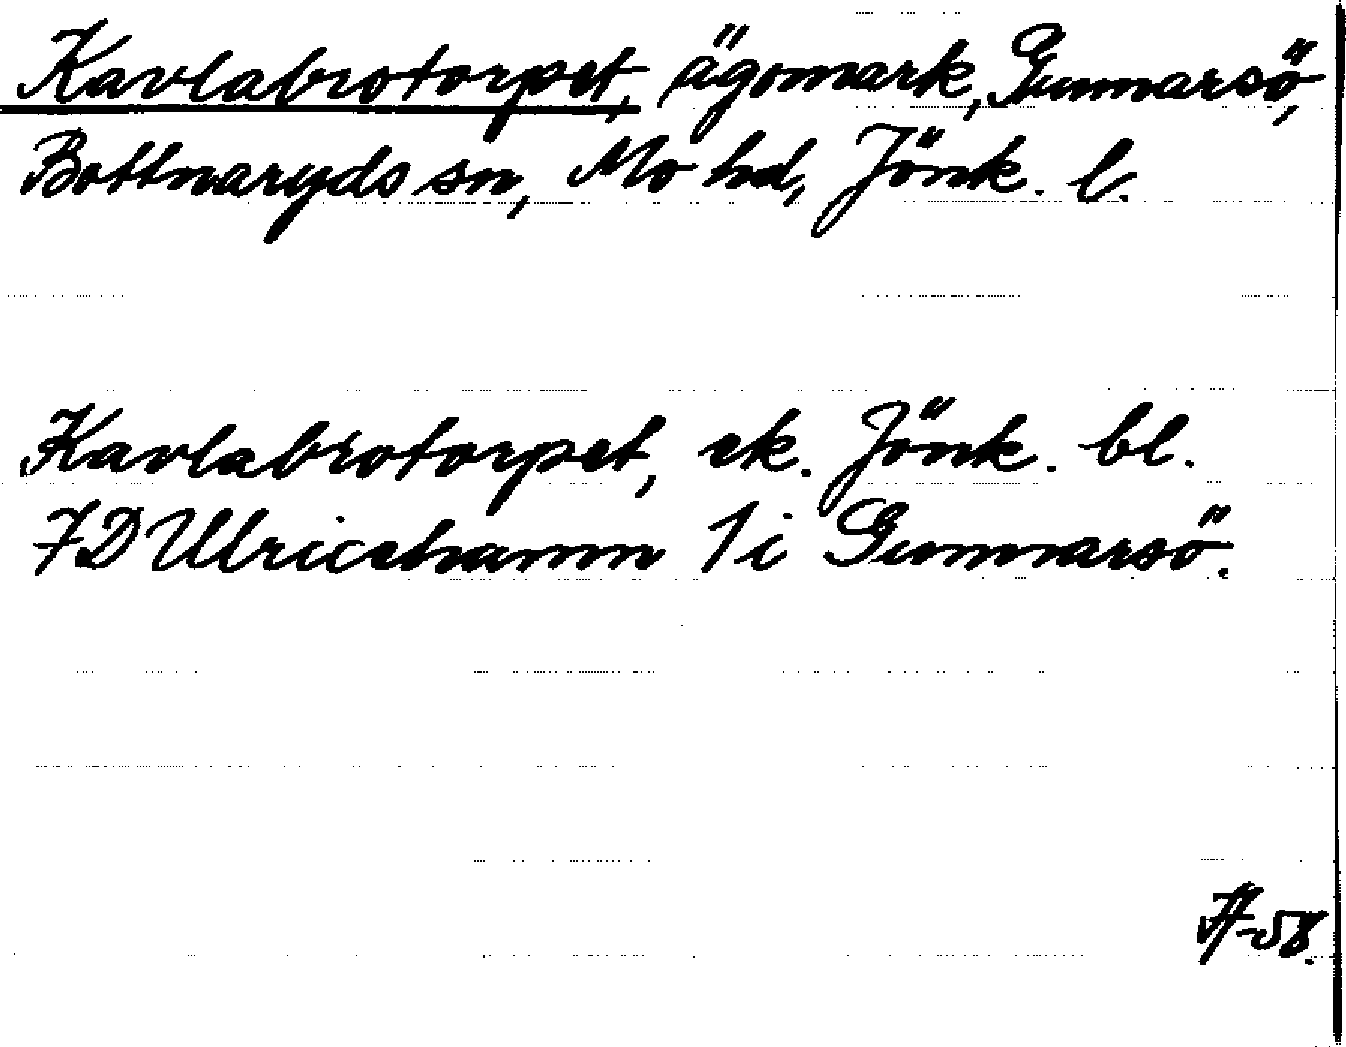 Kavlabrotorpet, ägomark, Gunnarsö,
Bottnaryds sn, Mo hd, Jönk. l.
Kavlabrotorpet, ek. Jönk. bl.
7D Ulricehamn 1 i Gunnarsö.
-58.